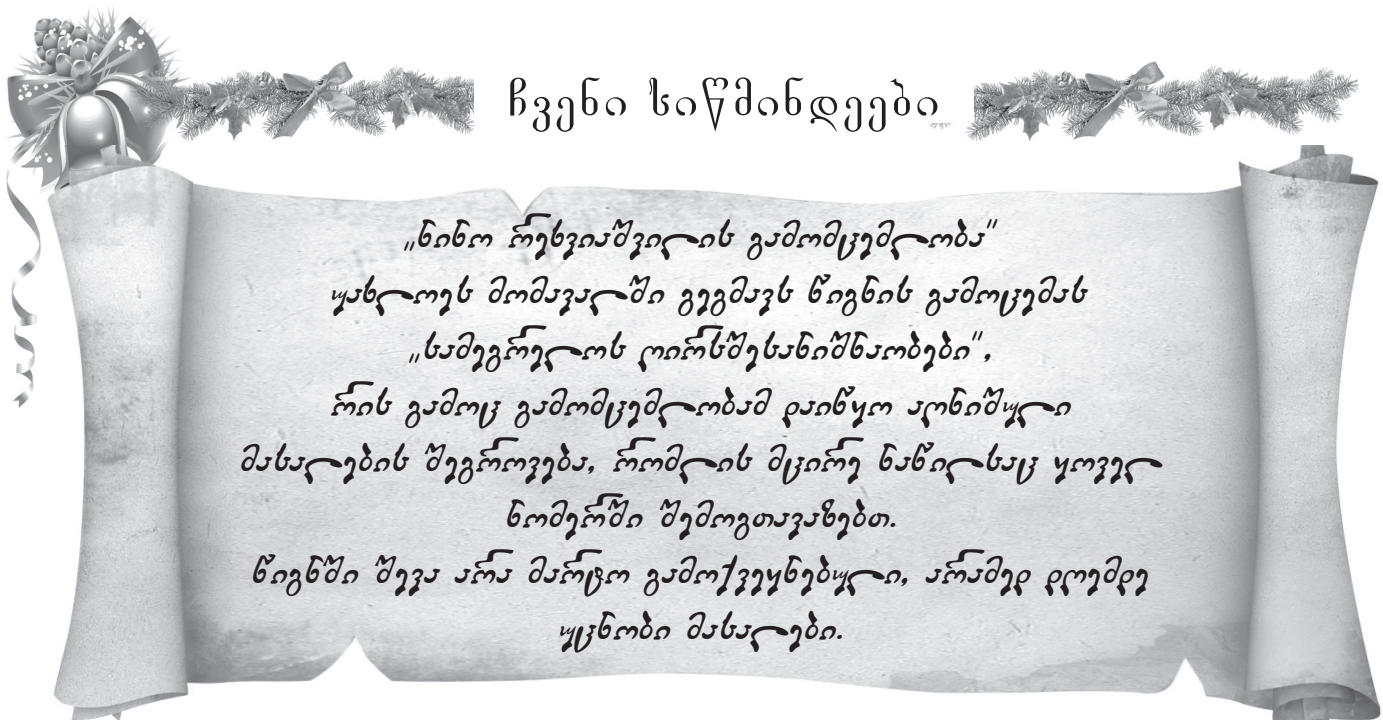 ჩვენი სიწმინდეები
„ნინო რეხვიაშვილის გამომცემლობა"
უახლოეს მომავალში გეგმავს წიგნის გამოცემას
„სამეგრელოს ღირსშესანიშნაობები",
რის გამოც გამომცემლობამ დაიწყო აღნიშული
მასალების შეგროვება, რომლის მცირე ნაწილსაც ყოველ
ნომერში შემოგთავაზებთ.
წიგნში შევა არა მარტო გამოქვეყნებული, არამედ დღემდე
უცნობი მასალები.